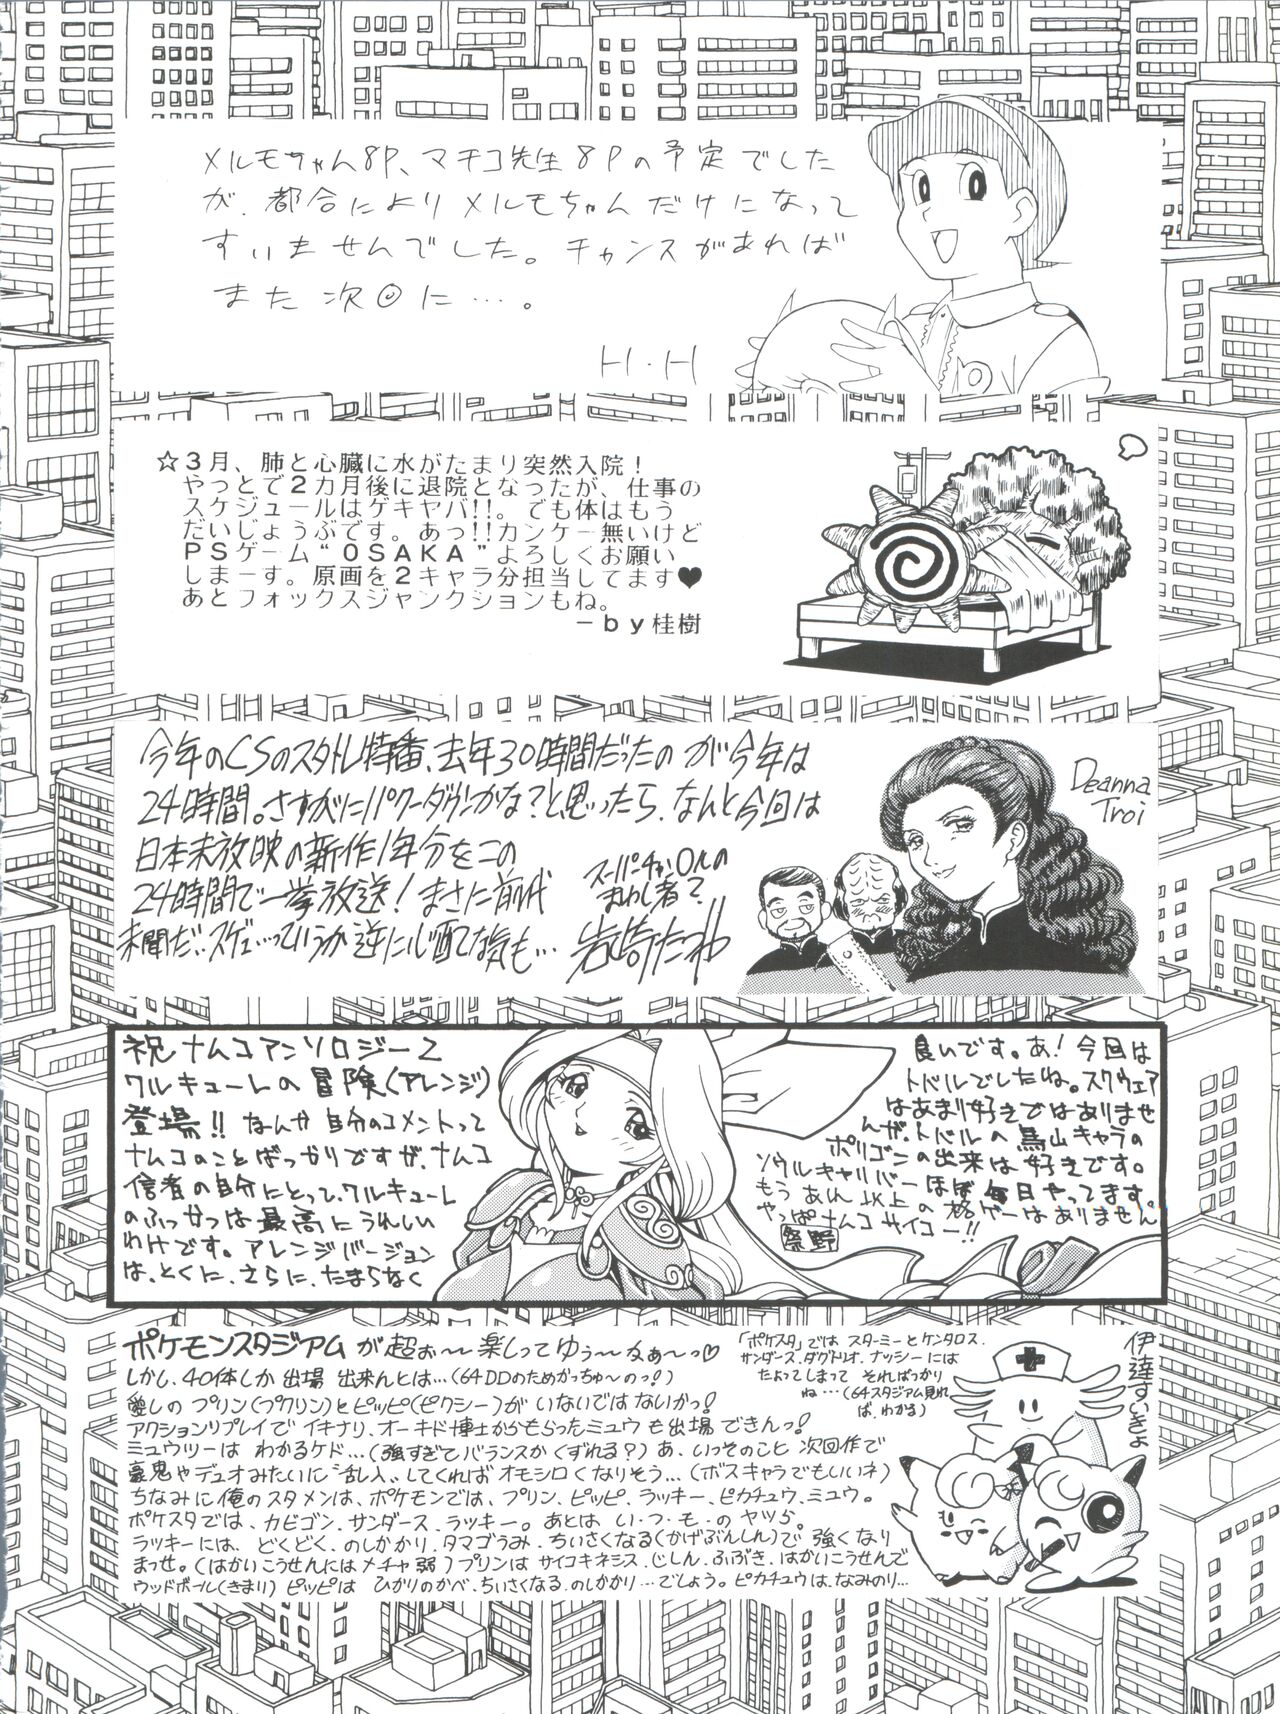 メルモちゃん8P、マチコ先生8Pの予定でした
が、都合によりメルモちゃんだけになって
すいませんでした。チャンスがあれば
また次回に…。
H・H
☆3月、肺と心臓に水がたまり突然入院！
やっとで2カ月後に退院となったが、仕事の
スケジュールはゲキヤバ!!。でも体はもう
だいじょうぶです。あっ!!カンケー無いけど
PSゲーム“OSAKA”よろしくお願い
しまーす。原画を2キャラ分担当してます♥
あとフォックスジャンクションもね。
－by桂樹
今年のCSのスタトレ特番、去年30時間だったのが今年は
24時間。さすがにパワーダウンかな？と思ったら、なんと今回は
日本未放映の新作1年分をこの
24時間で一挙放送！まさに前代
未聞だ‥スゲェ…っていうか逆に心配な気も…
スーパーチャンネルの
まわし者？
Deanna
Troi
祝 ナムコアンソロジー2
ワルキューレの冒険(アレンジ)
登場!! なんか自分のコメントって
ナムコのことばっかりですが、ナムコ
信者の自分にとって、ワルキューレ
のふっかつは最高にうれしい
わけです。アレンジバージョン
は、とくに、さらに、たまらなく
良いです。あ！今回は
トバルでしたね。スクウェア
はあまり好きではありませ
んが、トバルの鳥山キャラの
ポリゴンの出来は好きです。
ソウルキャリバーほぼ毎日やってます。
もうあれ以上の格ゲーはありません
やっぱナムコサイコー!!
祭野
ポケモンスタジアムが超ぉ〜楽しってゆぅ〜なぁ〜っ♡
しかし、40体しか出場出来んとは…(64DDのためがっちゅ〜のっ！)
愛しのプリン(プクリン)とピッピ(ピクシー)がいないではないかっ！
アクションリプレイでイキナリ、オーキド博士からもらったミュウも出場できんっ！
ミュウツーはわかるケド…(強すぎてバランスがくずれる？)あ、いっそのこと次回作で
豪鬼やデュオみたいに“乱入”してくればオモシロくなりそう…(ボスキャラでもいいネ)
ちなみに俺のスタメンは、ポケモンでは、プリン、ピッピ、ラッキー、ピカチュウ、ミュウ。
ポケスタでは、カビゴン、サンダース、ラッキー。あとはい・つ・も・のヤツら。
ラッキーには、どくどく、のしかかり、タマゴうみ、ちいさくなる(かげぶんしん)で強くなり
まっせ。(はかいこうせんにはメチャ弱)プリンはサイコキネシス、じしん、ふぶき、はかいこうせんで
ウッドボール(きまり)ピッピはひかりのかべ、ちいさくなる、のしかかり…でしょう。ピカチュウは、なみのり…
「ポケスタ」ではスターミーとケンタロス、
サンダース、ダグトリオ、ナッシーには
たよってしまってそればっかり
ね…(64スタジアム見れ
ば、わかる)
伊達すいきょ